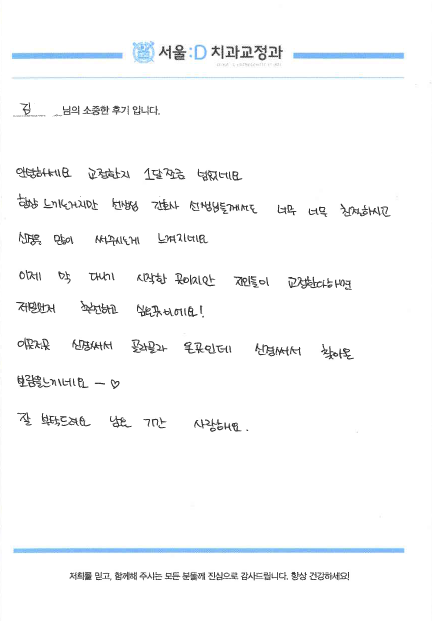 서울:D 치과교정과
김 님의 소중한 후기 입니다.
안녕하세요 교정한지 1달쪼금 넘었네요
항상 느끼는거지만 선생님 간호사 선생님들께서도 너무 너무 친절하시고
신경을 많이 써주시는게 느껴지네요
이제 막 다니기 시작한 곳이지만 지인들이 교정한다하면
제일먼저 추천하고 싶은곳이에요!
이곳저곳 신경써서 골라골라 온곳인데 신경써서 찾아온
보람을느끼네요 ㅡ♡
잘 부탁드려요 남은 기간 사랑해요.
저희를 믿고, 함께해 주시는 모든 분들께 진심으로 감사드립니다. 항상 건강하세요!